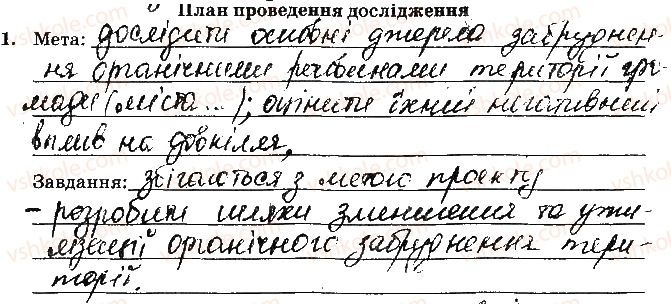 План проведення дослідження
1. Мета: дослідити основні джерела забруднен-
ня органічними речовинами території гро-
мади (міста...); оцінити їхній негативний
вплив на довкілля,
Завдання: збігаються з метою проекту
– розробити шляхи зменшення та
органічного забруднення тери-
торії.